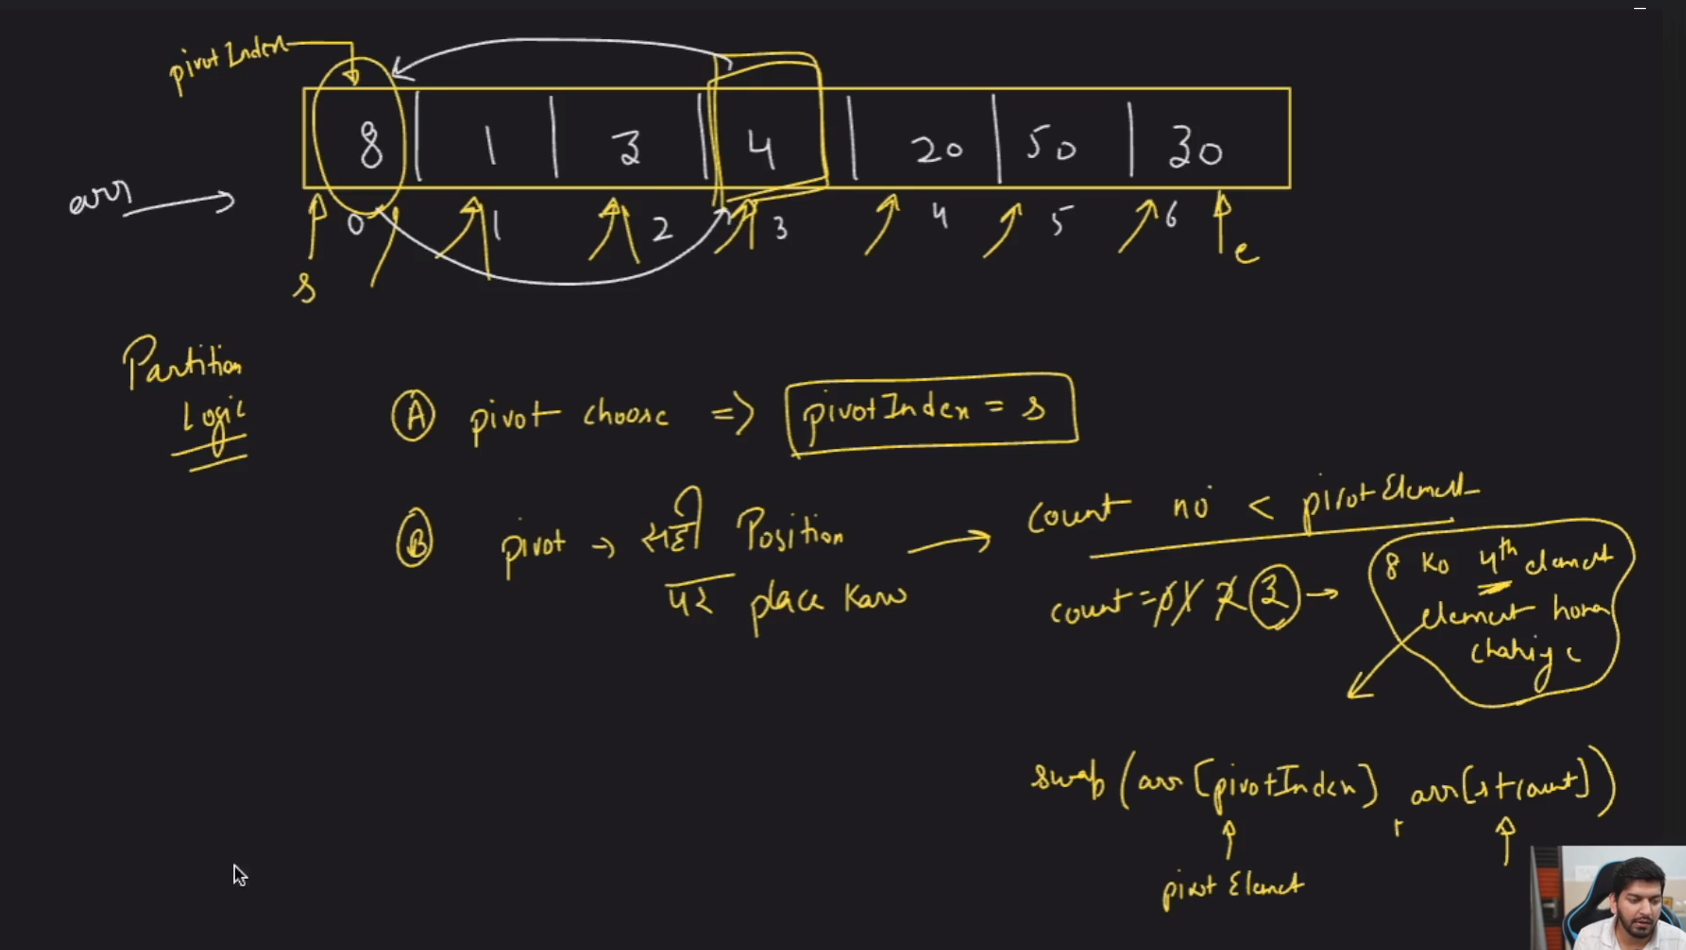 pivotIndex
8 | 1 | 3 | 4 | 20 | 50 | 30
arr
0 1 2 3 4 5 6
s e
Partition
Logic
A pivot choose => pivotIndex = s
B pivot → सही Position
पर place Karo
count no < pivotElement
count = 0 1 2 3 →
8 Ko 4th element
element hona
chahiye
swap (arr[pivotIndex], arr[s+count])
pivot Element